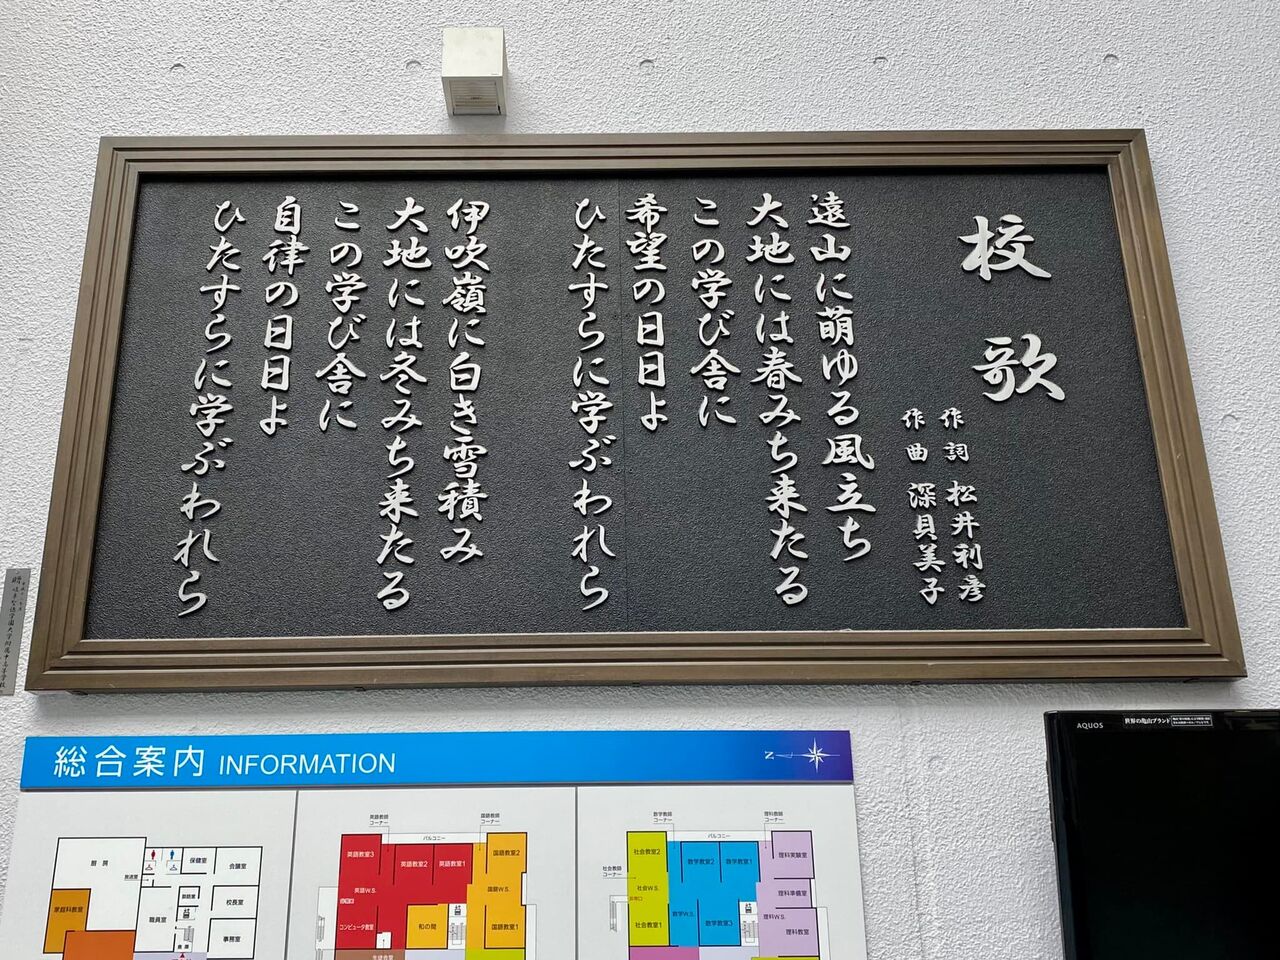 校歌
作詞 松井利彦
作曲 深貝美子
遠山に萌ゆる風立ち
大地には春みち来たる
この学び舎に
希望の日日よ
ひたすらに学ぶわれら
伊吹嶺に白き雪積み
大地には冬みち来たる
この学び舎に
自律の日日よ
ひたすらに学ぶわれら
総合案内 INFORMATION
N
厨房
保健室
会議室
放送室
家庭科教室
職員室
校長室
事務室
英語教師コーナー
国語教師コーナー
バルコニー
英語教室3
英語教室2
英語教室1
国語教室2
英語W.S.
国語W.S.
コンピュータ教室
和の間
国語教室1
生徒会室
数学教師コーナー
理科教師コーナー
バルコニー
社会教師コーナー
社会教室2
数学教室2
数学教室1
理科実験室
社会W.S.
理科準備室
数学W.S.
数学教室3
理科W.S.
社会教室1
理科教室
AQUOS
世界の亀山ブランド